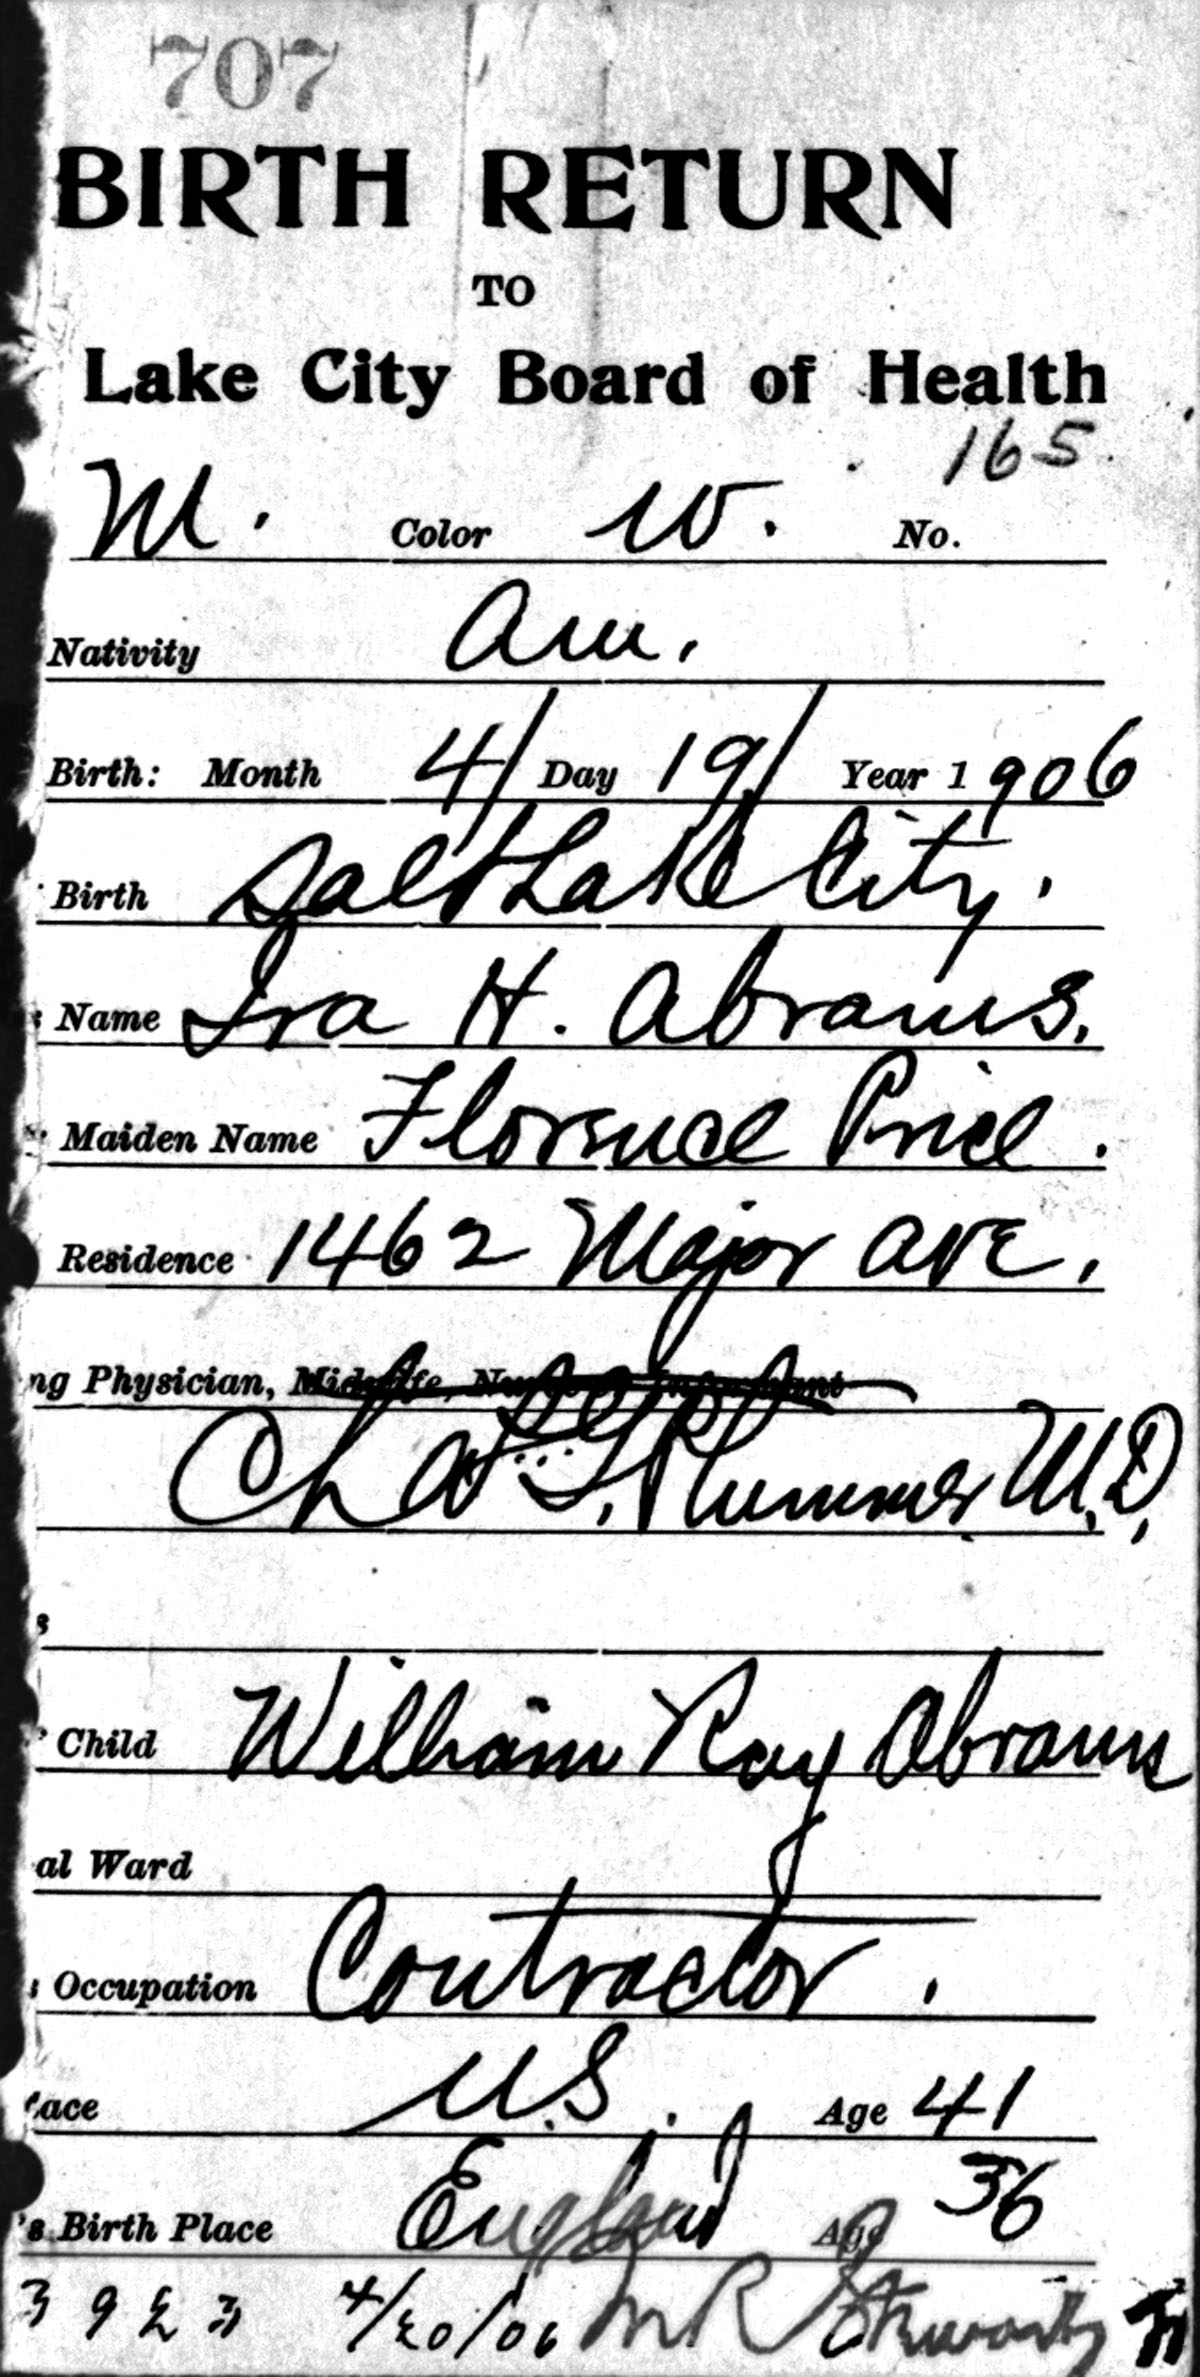 707
BIRTH RETURN
TO
Lake City Board of Health
165
M. Color W. No.
Nativity Am.
Birth: Month 4/ Day 19/ Year 1906
Birth Salt Lake City.
Name Ira H. Abrams.
Maiden Name Florence Price.
Residence 1462 Major Ave.
ng Physician, Midwife, Nurse or Informant
Chas G. Plummer M.D.
s
Child William Ray Abrams
al Ward
Occupation Contractor.
lace U.S. Age 41
's Birth Place England Age 36
3923 4/20/06 M R Stewart